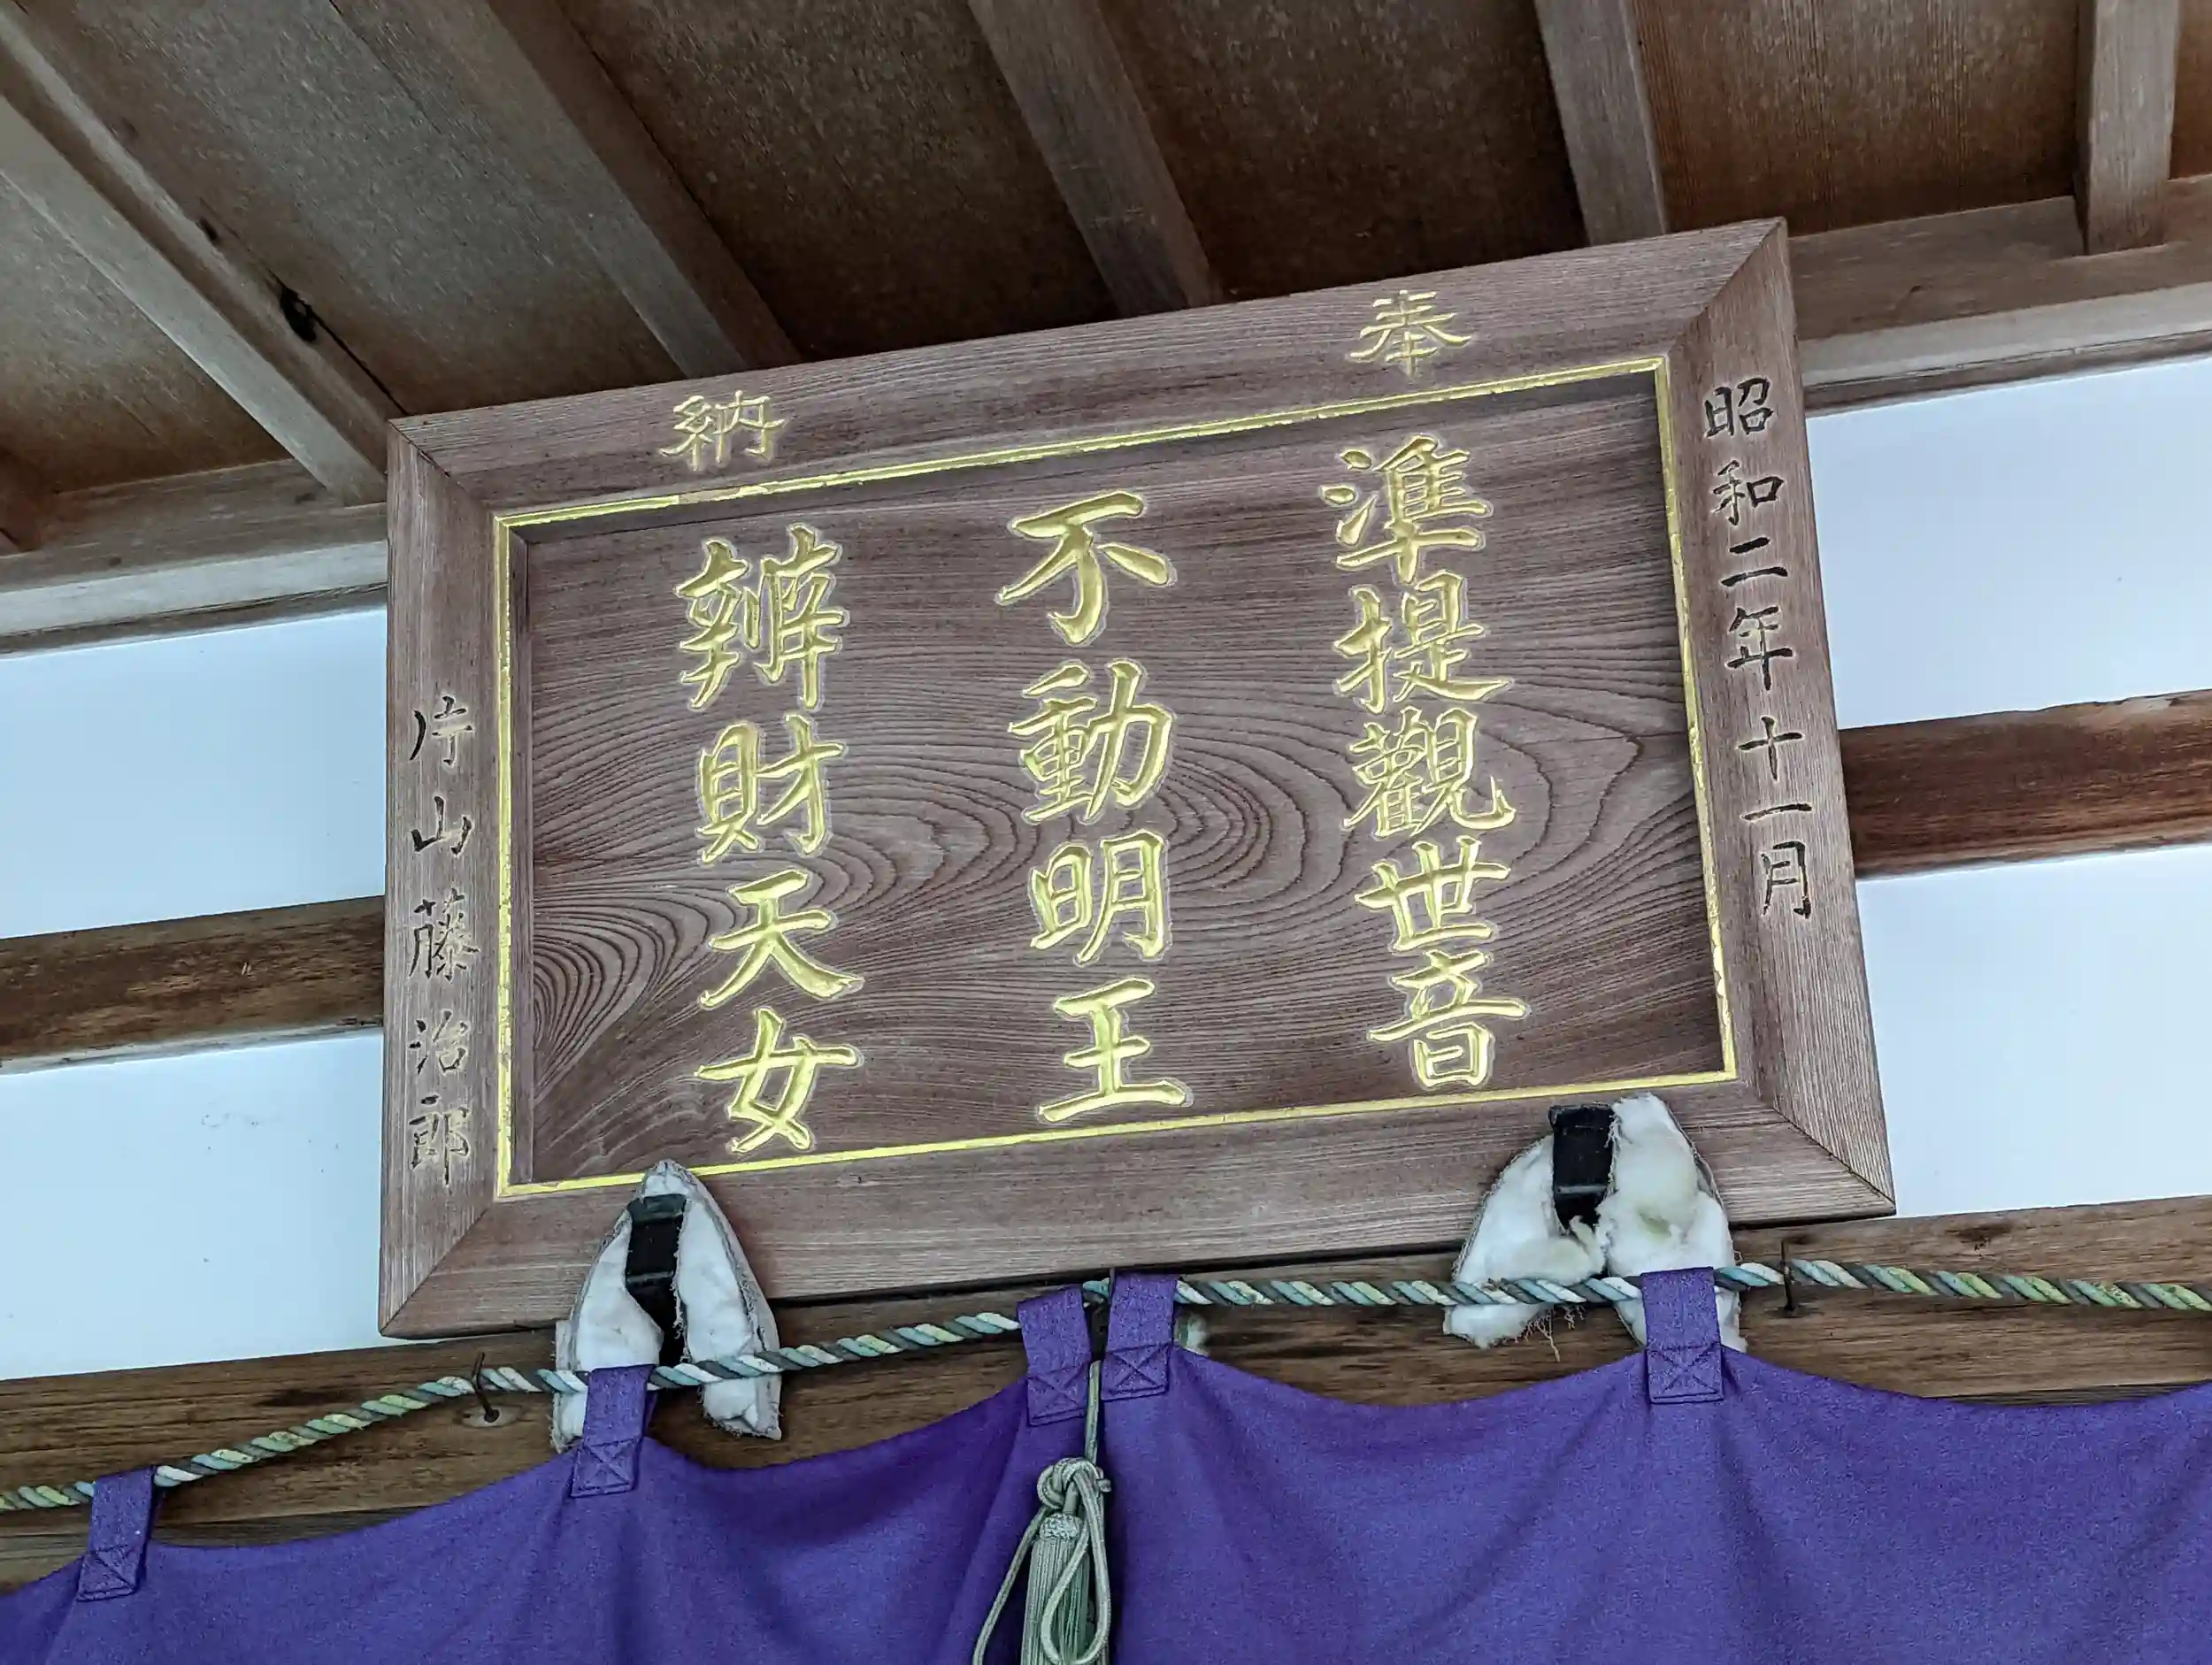 奉納
昭和二年十一月
準提觀世音
不動明王
辨財天女
片山藤治郎